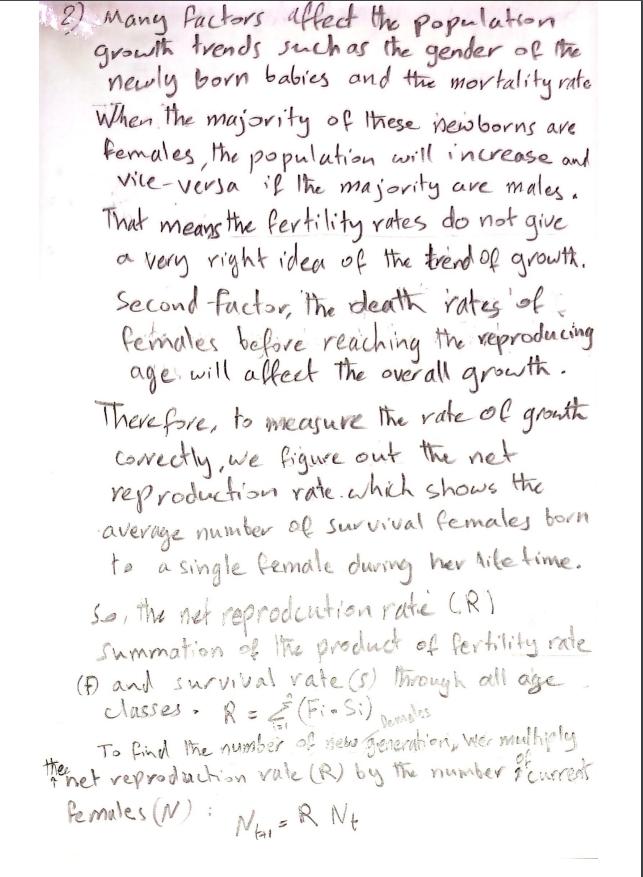 2) Many factors affect the population
growth trends such as the gender of the
newly born babies and the mortality rate
When the majority of these newborns are
females, the population will increase and
vice-versa if the majority are males.
That means the fertility rates do not give
a very right idea of the trend of growth.
Second factor, the death rates of
females before reaching the reproducing
age will affect the overall growth.
Therefore, to measure the rate of growth
correctly, we figure out the net
reproduction rate. which shows the
average number of survival females born
to a single female during her life time.
So, the net reprodcution rate (R)
summation of the product of fertility rate
(f) and survival rate (s) through all age
classes. R = Σ (Fi. Si)
females
To find the number of new generation, we multiply
the net reproduction rate (R) by the number of current
females (N) :
Nt+1 = R Nt